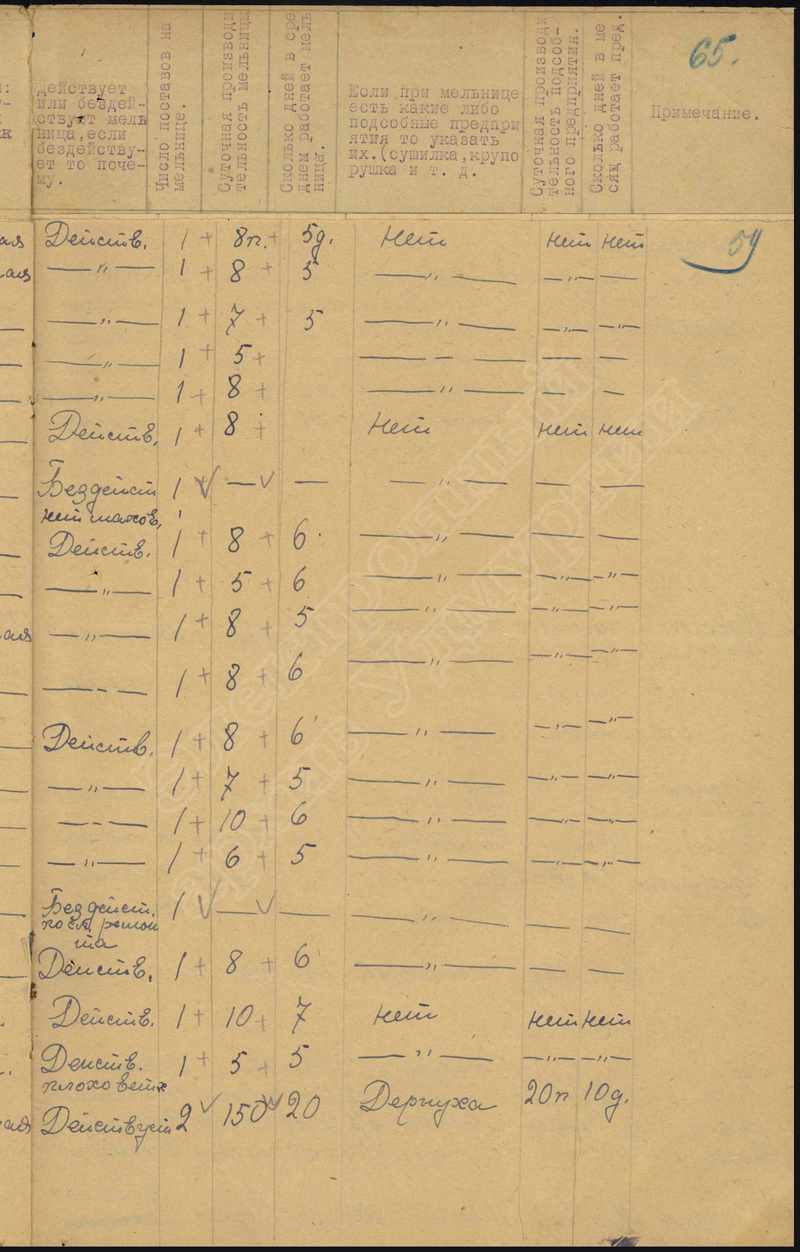 65.
действует
или бездей-
ствует мель
ница, если
бездейству-
ет то поче-
му.
Число поставов на
мельнице.
Суточная производи
тельность мельницы
Сколько дней в сре
днем работает мель
ница.
Если при мельнице
есть какие либо
подсобные предпри
ятия то указать
их. (сушилка, крупо
рушка и т. д.
Суточная производи
тельность подсоб-
ного предприятия.
Сколько дней в ме
сяц работает пред.
Примечание.
Действ. 1 + 8п. + 5д. Нет Нет Нет 59
— " — 1 + 8 + 5 — " — — " — —
— " — 1 + 7 + 5 — " — — " — — " —
— " — 1 + 5 + — — — — —
— " — 1 + 8 + — " — — —
Действ. 1 + 8 + Нет Нет Нет
Бездейст 1 √ — √ — — " — — —
нет
Действ. 1 + 8 + 6 — " — — —
— " — 1 + 5 + 6 — " — — " — — " —
— " — 1 + 8 + 5 — " — — " — — " —
— - — 1 + 8 + 6 — " — — " — — " —
Действ. 1 + 8 + 6 — " — — " — — " —
— " — 1 + 7 + 5 — " — — " — — " —
— - — 1 + 10 + 6 — " — — " — — " —
— " — 1 + 6 + 5 — " — — " — — " —
Бездейст. 1 √ — √ — — " — — —
ремон
та
Действ. 1 + 8 + 6 — " — — —
Действ. 1 + 10 + 7 Нет Нет Нет
Действ. 1 + 5 + 5 — " — — " — — " —
плохо
Действует 2 √ 150 √ 20 Дернуха 20п 10д.